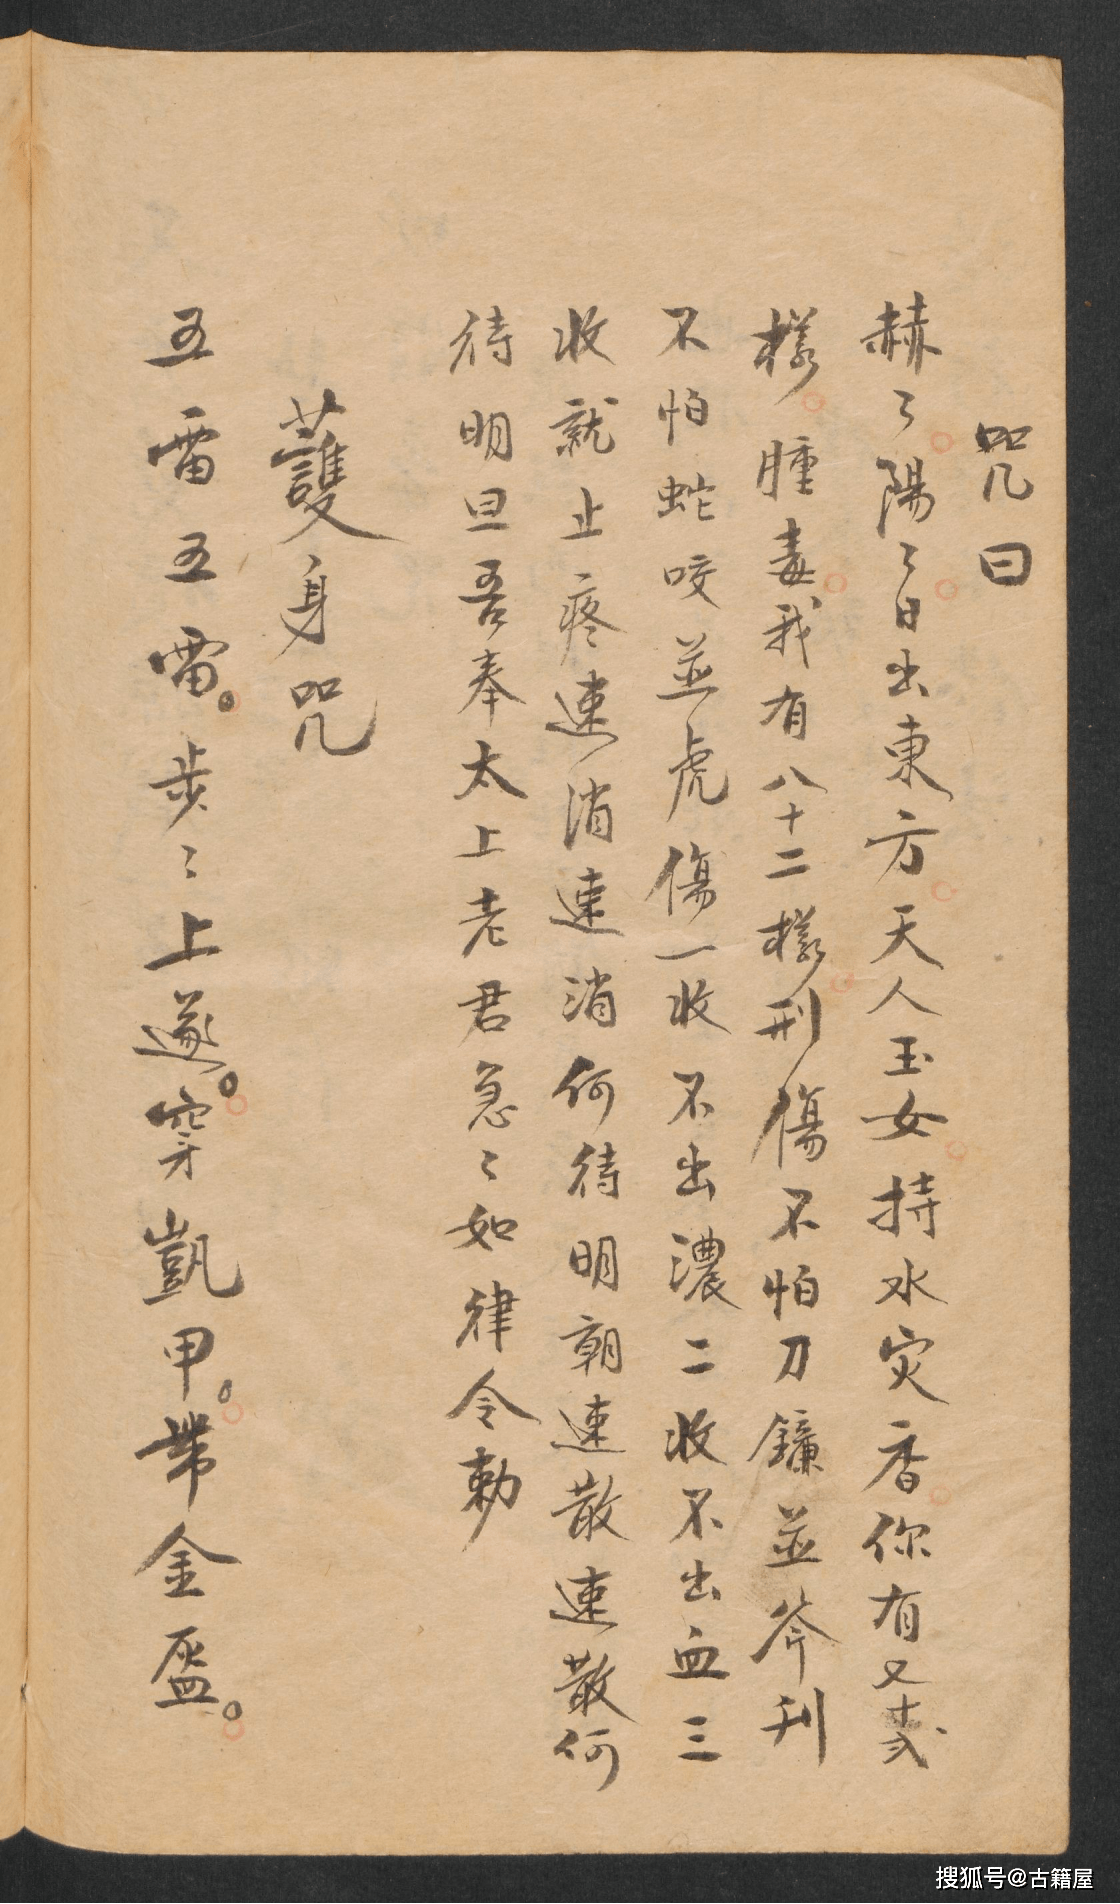 咒曰
赫〻陽〻日出東方天人玉女持水灾香你有又十弍
樣腫毒我有八十二樣刑傷不怕刀鐮並斧刋
不怕蛇咬並虎傷一收不出濃二收不出血三
收就止疼速消速消何待明朝速散速散何
待明旦吾奉太上老君急〻如律令勅
護身咒
五雷五雷。步〻上遂。穿凱甲。帶金盔。
搜狐号@古籍屋